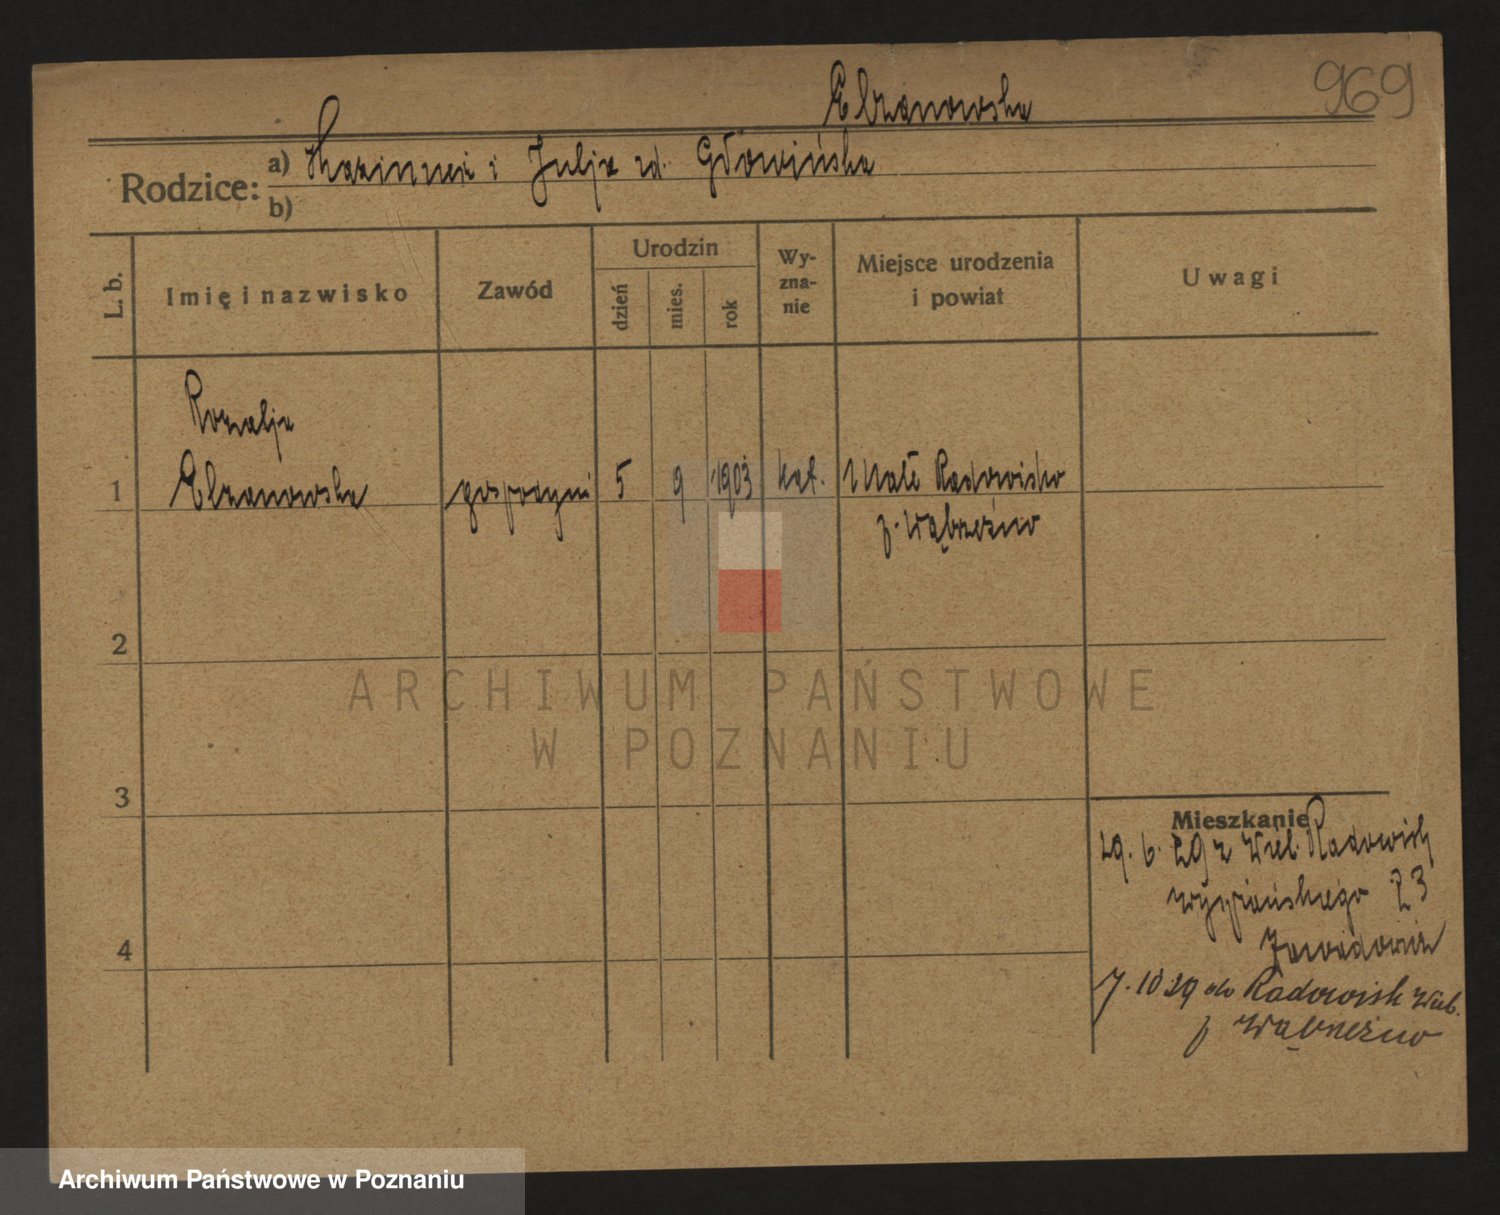 969
Elzanowska
Rodzice: a) Kazimierz i Julja zd. Głowińska
b)
L. b.
Imię i nazwisko
Zawód
Urodzin
dzień
mies.
rok
Wy-
zna-
nie
Miejsce urodzenia
i powiat
Uwagi
Rozalja
1 Elzanowska gospodyni 5 9 1903 kat. Małe Radowisko
p. Wąbrzeźno
2
3
4
Mieszkanie
29. 6. 29 z Wiel. Radowisk
23
7. 10 29 do Radowisk Wiel.
p Wąbrzeźno
ARCHIWUM PAŃSTWOWE
W POZNANIU
Archiwum Państwowe w Poznaniu